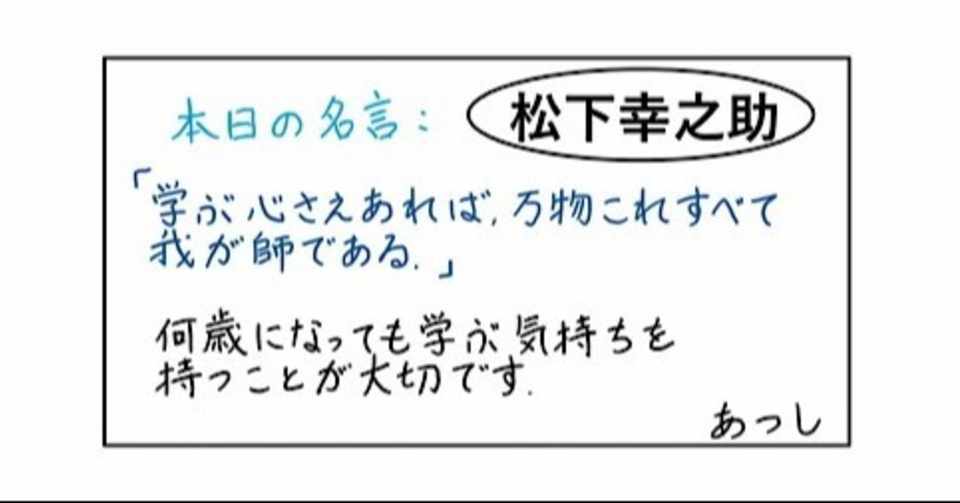 本日の名言: 松下幸之助
「学ぶ心さえあれば, 万物これすべて
我が師である.」
何歳になっても学ぶ気持ちを
持つことが大切です.
あつし